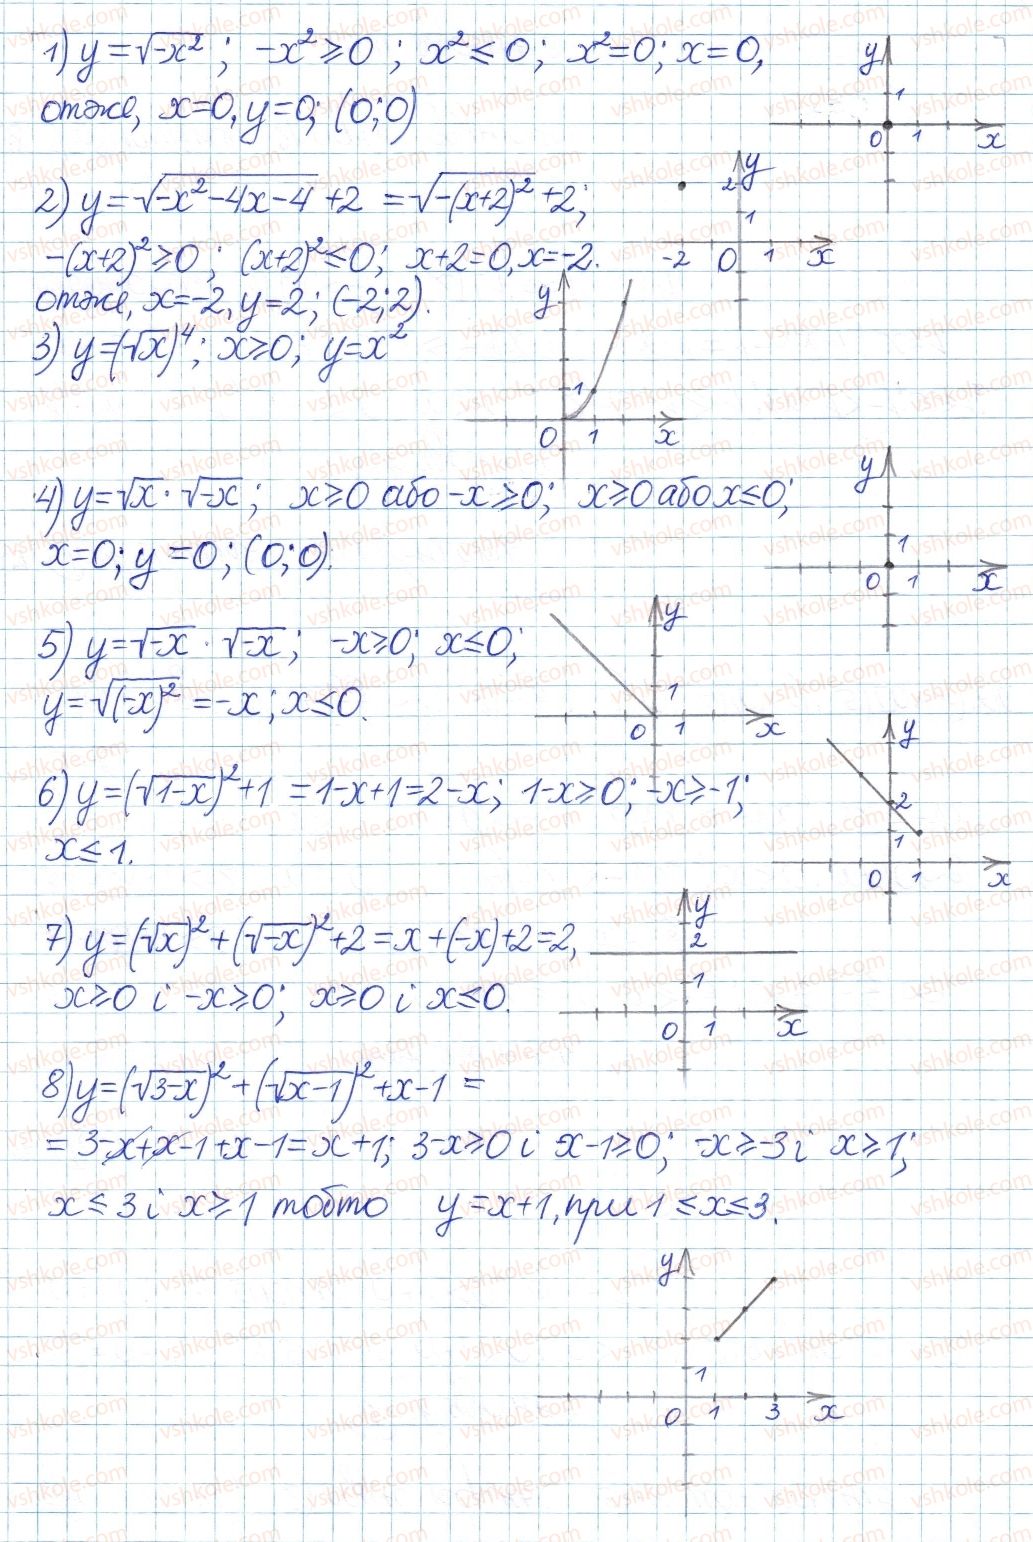 1) y=√-x²; -x²≥0; x²≤0; x²=0; x=0,
отже, x=0, y=0; (0;0)
y
1
0 1 x
2) y=√-x²-4x-4+2 =√-(x+2)²+2;
-(x+2)²≥0; (x+2)²≤0; x+2=0, x=-2.
отже, x=-2, y=2; (-2;2).
y
2
1
-2 0 1 x
3) y=(√x)⁴; x≥0; y=x²
y
1
0 1 x
4) y=√x · √-x; x≥0 або -x≥0; x≥0 або x≤0;
x=0; y=0; (0;0).
y
1
0 1 x
5) y=√-x · √-x; -x≥0; x≤0;
y=√(-x)² =-x; x≤0.
y
1
0 1 x
6) y=(√1-x)²+1 =1-x+1=2-x; 1-x≥0; -x≥-1;
x≤1.
y
2
1
0 1 x
7) y=(√x)²+(√-x)²+2=x+(-x)+2=2,
x≥0 і -x≥0; x≥0 і x≤0.
y
2
1
0 1 x
8) y=(√3-x)²+(√x-1)²+x-1 =
= 3-x+x-1+x-1=x+1; 3-x≥0 і x-1≥0; -x≥-3 і x≥1;
x≤3 і x≥1 тобто y=x+1, при 1≤x≤3.
y
1
0 1 3 x
vshkole.com